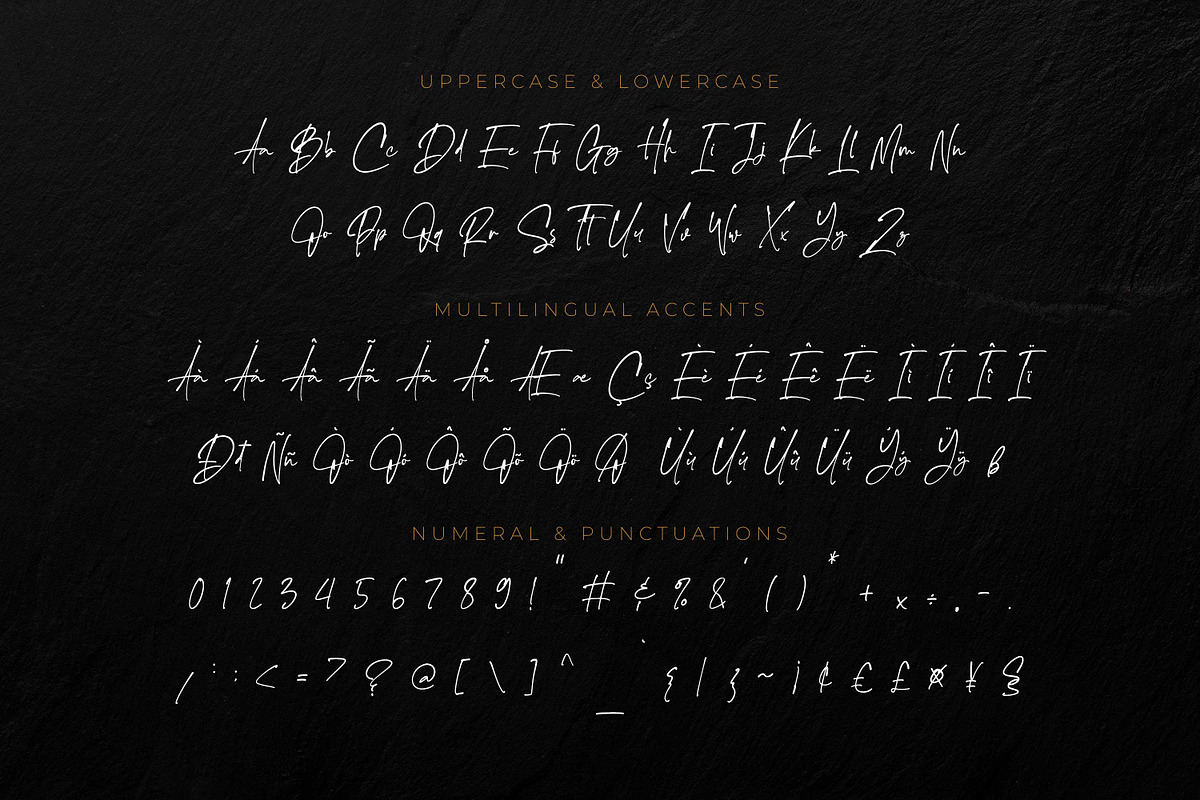 UPPERCASE & LOWERCASE
Aa Bb Cc Dd Ee Ff Gg Hh Ii Jj Kk Ll Mm Nn
Oo Pp Qq Rr Ss Tt Uu Vv Ww Xx Yy Zz
MULTILINGUAL ACCENTS
Àà Áá Ââ Ãã Ää Åå Æ æ Çç Èè Éé Êê Ëë Ìì Íí Îî Ïï
Đđ Ññ Òò Óó Ôô Õõ Öö Ø Ùù Úú Ûû Üü Ýý Ÿÿ ß
NUMERAL & PUNCTUATIONS
0 1 2 3 4 5 6 7 8 9 ! " # & % & ' ( ) * + × ÷ . - .
/ : : < = ? @ [ \ ] ^ _ ` { | } ~ ¡ ¢ € £ ¤ ¥ §